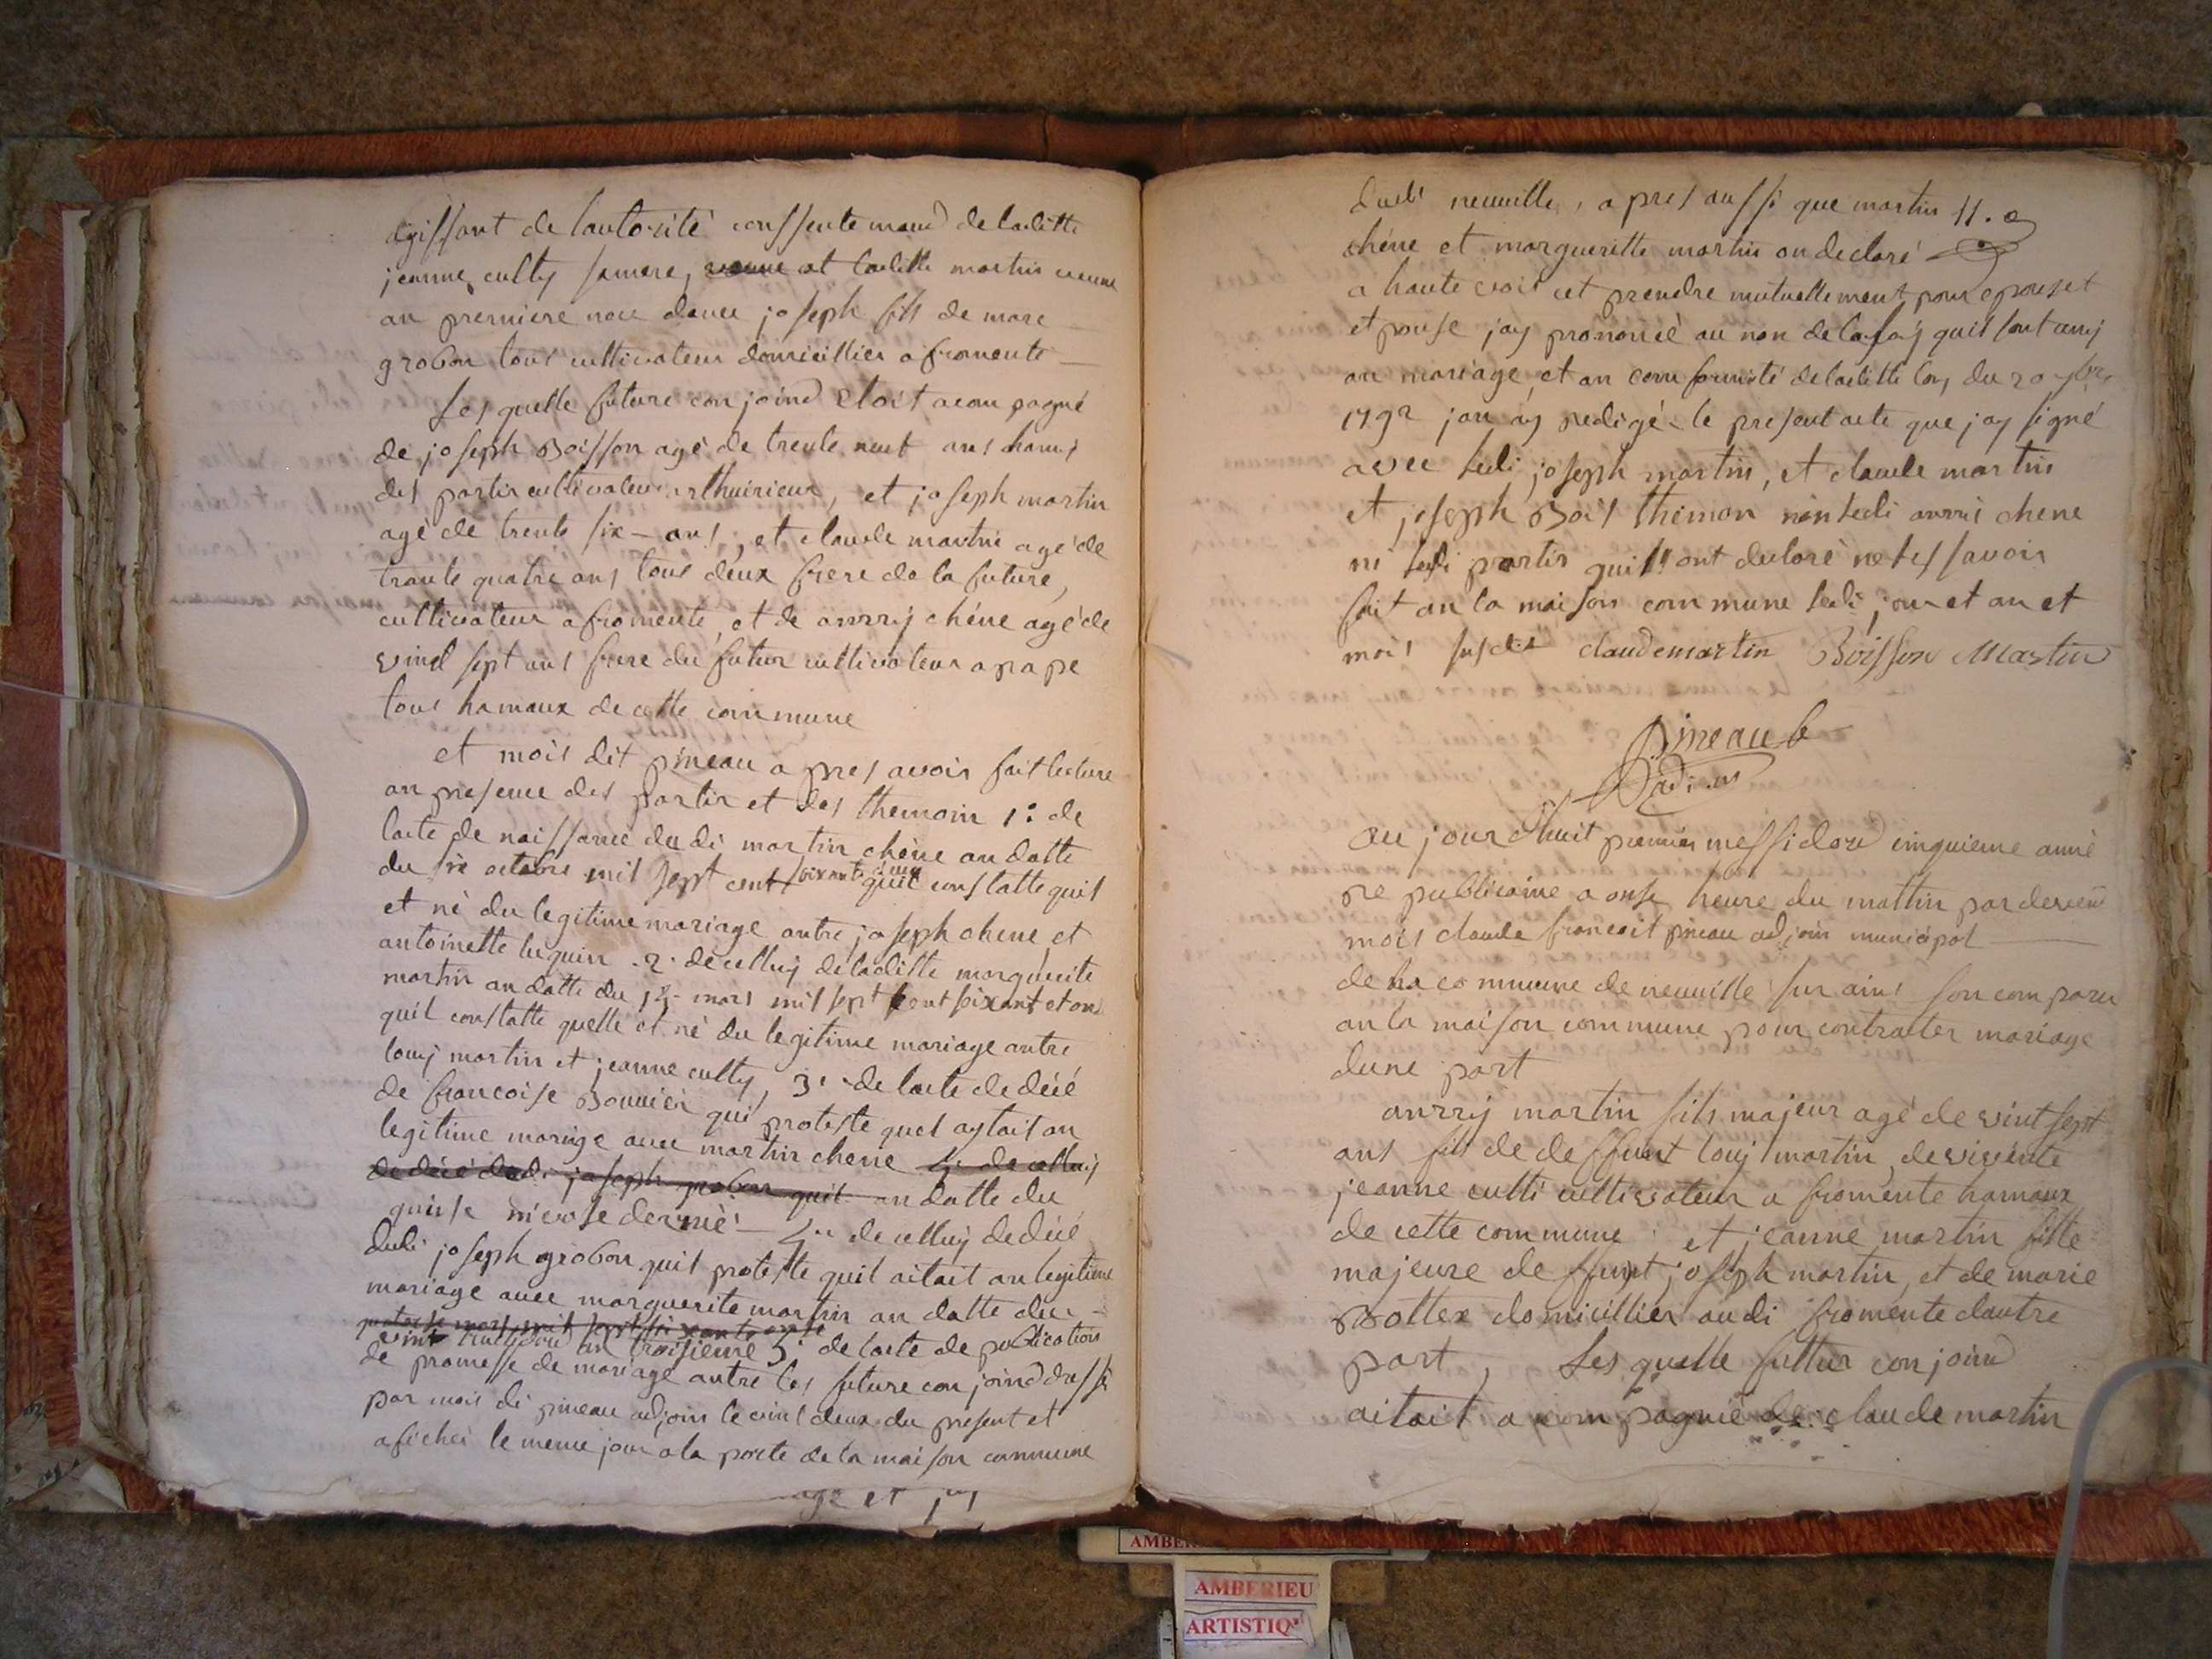 agissant de lautorité conssentemand de laditte
jeanne culty samere, et laditte martin veuve
an premiere noce davec joseph fils de marc
grobon tous cultivateur domicillier a fromente
Les quelle future conjoind etoit acompagné
de joseph Boisson agé de trente neuf ans
des partis cultivateur, et joseph martin
agé de trente six ans, et claude martin agé de
trante quatre ans tous deux frere de la future,
cultivateur a fromente, et de anrry chéne agé de
vind sept ans frere du futur cultivateur a pape
tous hamaux de cette commune
et mois dit pineau a pres avoir fait lecture
an presence des partis et des themoin 1: de
lacte de naissance du di martin chéne an datte
du six octobre mil sept cent soixante deux quil constatte quil
et né du legitime mariage antre joseph chene et
antoinette luquin .2. de celluy de laditte marguerite
martin an datte du 14 mars mil sept cent soixante et onse
quil constatte quelle et né du legitime mariage antre
louy martin et jeanne culty, 3. de lacte de décé
de francoise Bouvier qui proteste quel aytait an
legitime mariage avec martin chene 4. de celluy
de décé dudi joseph grobon quil an datte du
quinse nivose dernié 4. de celluy de décé
dudi joseph grobon quil proteste quil aitait an legitime
mariage avec marguerite martin an datte du
quatorse mars mil sept soixante onse
vint an troisieme 5. de lacte de publication
de promesse de mariage antre les future conjoind
par mois di pineau adjoin le vint deux du present et
afiché le meme jour a la porte de la maison commune
age et
dudi neuville, a pres aussi que martin
chéne et marguerite martin on declaré
a haute vois prendre mutuellement pour epouset
epouse jay prononcé au non de la loy quil sont uny
an mariage et an conformité de laditte loy du 20
1792 jan ay redigé le present acte que jay signé
avec ledi joseph martin, et claude martin
et joseph Bois themon non ledi anrris chene
ni ledi partis quils ont declaré ne les savoir
fait an la maison commune ledi jour et an et
mois susdit claude martin Boisson Martin
Pineau
adjoin
au jourdhuit premier messidord cinquieme anné
republicaine a onse heure du mattin par devend
mois claude francoit pineau adjoin municipal
de la commune de neuville sur ains son comparu
an la maison commune pour contracter mariage
dune part
anrry martin fils majeur agé de vint sept
ans fils de deffunt louy martin, de vivante
jeanne culti cultivateur a fromente hamaux
de cette commune et jeanne martin fille
majeure de ffunt joseph martin, et de marie
Bottex domicillier audi fromente dautre
part, Les quelle futtur conjoind
aitait acompagnié de claude martin
AMBERIEU
ARTISTIQ